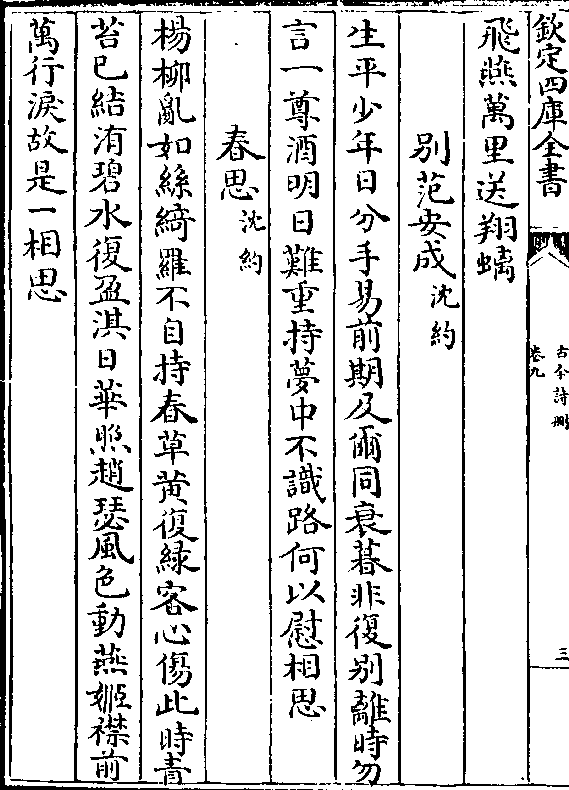 欽定四庫全書
古今詩刪
卷九
三
飛燕萬里送翔螭
别范安成沈約
生平少年日分手易前期及爾同衰暮非復别離時勿
言一尊酒明日難重持夢中不識路何以慰相思
春思沈約
楊柳亂如絲綺羅不自持春草黄復緑客心傷此時青
苔已結洧碧水復盈淇日華照趙瑟風色動燕姬襟前
萬行淚故是一相思